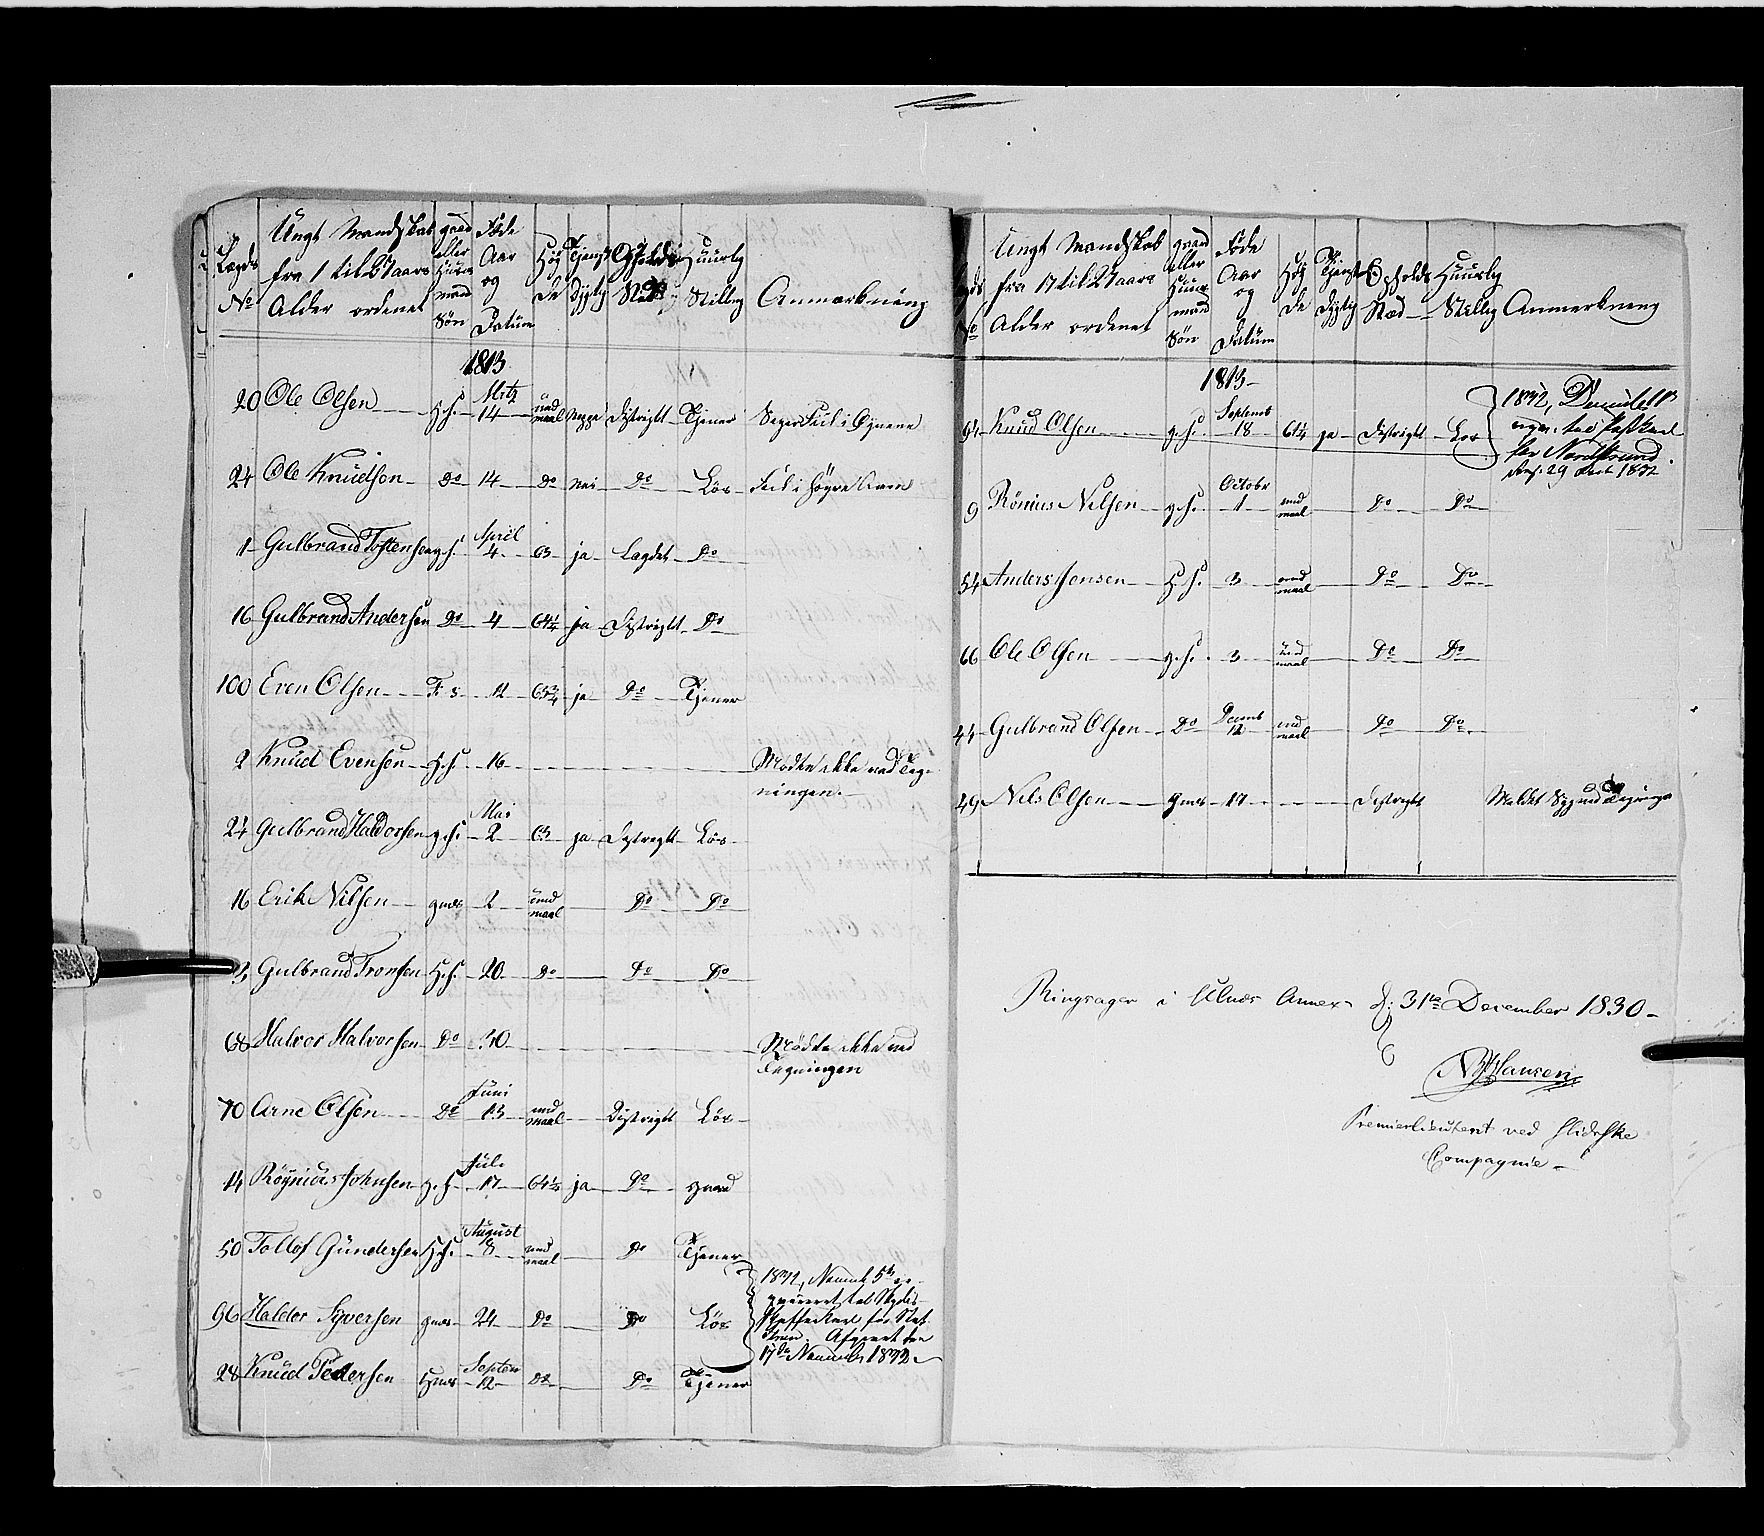 Lægds No | Ungt Mandskab fra 17 til 27 aars Alder ordenet | gaard eller Huusmand Søn | Føde Aar og Datum | Høyde | Tjenst Dygtig | Opholds Stæd | Huuslig Stilling | Anmærkning
1813
20 Ole Olsen H.S. Mrtz 14 und maal Distrigtt Tjener Feil i Øynene
24 Ole Knudson Do 14 Do nei Do Løs Feil i høyre Arm
1 Gulbrand Tostensen g.S. April 4 63 ja Lægdet Do
16 Gulbrand Andersen Do 4 64¼ ja Distrigtt Do
100 Even Olsen F. s 12 63¾ ja Do Tjener
2 Knud Evensen H.S. 16 Mødte ikke ved Teg-
ningen.
24 Gulbrand Haldorsen g.S. Mai 2 63 ja Distrigtt Løs
16 Erik Nilsen gms 2 und maal Do Do
Gulbrand Tronsen H.S. 20 Do Do Do
68 Halvor Halvorsen Do 30 Mødte ikke ved
Tegningen
70 Arne Olsen Do Juni 13 und maal Distrigtt Løs
14 Røynius Johnsen g.S. Juli 17 64½ ja Do gaard
50 Tollof Gundersen H.S. August 8 und maal Do Tjener
96 Haldor Syversen gms 24 Do Do Løs
1832, Novmb 5te
17de Novmb 1832
28 Knud Pedersen Hms Septem 12 Do Do Tjener
No | Ungt Mandskab fra 17 til 27 aars Alder ordenet | gaard eller Huusmand Søn | Føde Aar og Datum | Høyde | Tjenst Dygtig | Opholds Stæd | Huuslig Stilling | Anmærkning
1813
94 Knud Olsen g.S. Septemb 18 61¼ ja Distrigtt Løs
1832,
29 1832
9 Rønius Nilsen g.S. Octobr 1 und maal Do Do
54 Anders Jonsen H.S. 3 und maal Do Do
66 Ole Olsen g.S. 3 und maal Do Do
44 Gulbrand Olsen Do Decemb 12 und maal Do Do
49 Nils Olsen gms 17 Distrigtt Meldt Syg ved Tegninga
Ringsager i Ulnæs Annex d: 31te December 1830
NHansen
Premierlieutent ved Slidrske
Compagnie